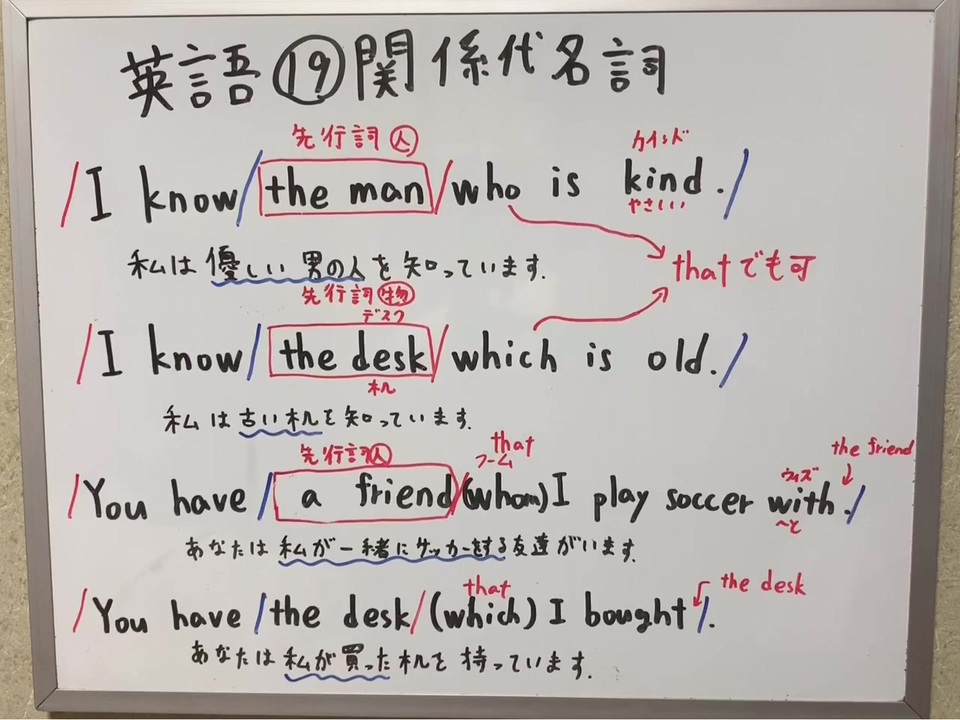 英語⑲関係代名詞
先行詞人
カインド
/I know/the man/who is kind./
やさしい
私は優しい男の人を知っています.
thatでも可
先行詞物
デスク
/I know/the desk/which is old./
机
私は古い机を知っています.
that
the friend
先行詞人
フーム
ウィズ
/You have/a friend/(whom)I play soccer with./
〜と
あなたは私が一緒にサッカーをする友達がいます.
that
the desk
/You have/the desk/(which) I bought/.
あなたは私が買った机を持っています.